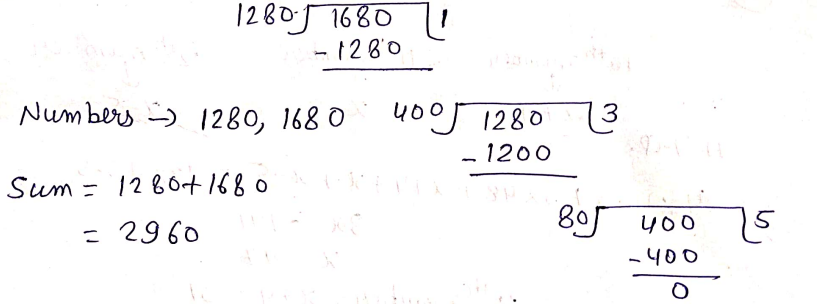 1280) 1680 (1
- 1280
Numbers → 1280, 1680
400) 1280 (3
- 1200
Sum = 1280+1680
= 2960
80) 400 (5
- 400
0